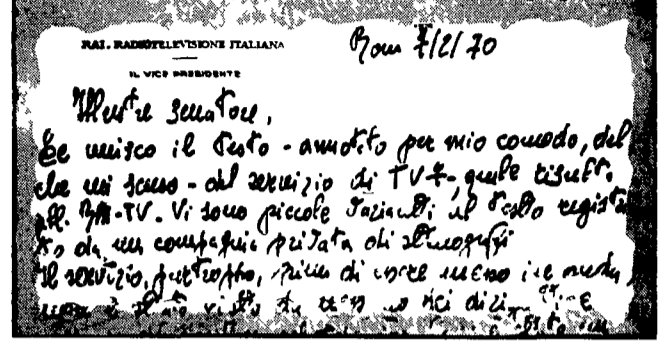 RAI. RADIOTELEVISIONE ITALIANA
IL VICE PRESIDENTE
Roma 7/2/70
Illustre Senatore,
Le unisco il testo - annotato per mio comodo, del
che mi scuso - del servizio di TV 7, quale risulta
all. RAI-TV. Vi sono piccole varianti nel testo registra
to da una compagnia privata di stenografi
Il servizio, purtroppo, prima di essere messo in onda,
è stato visto da